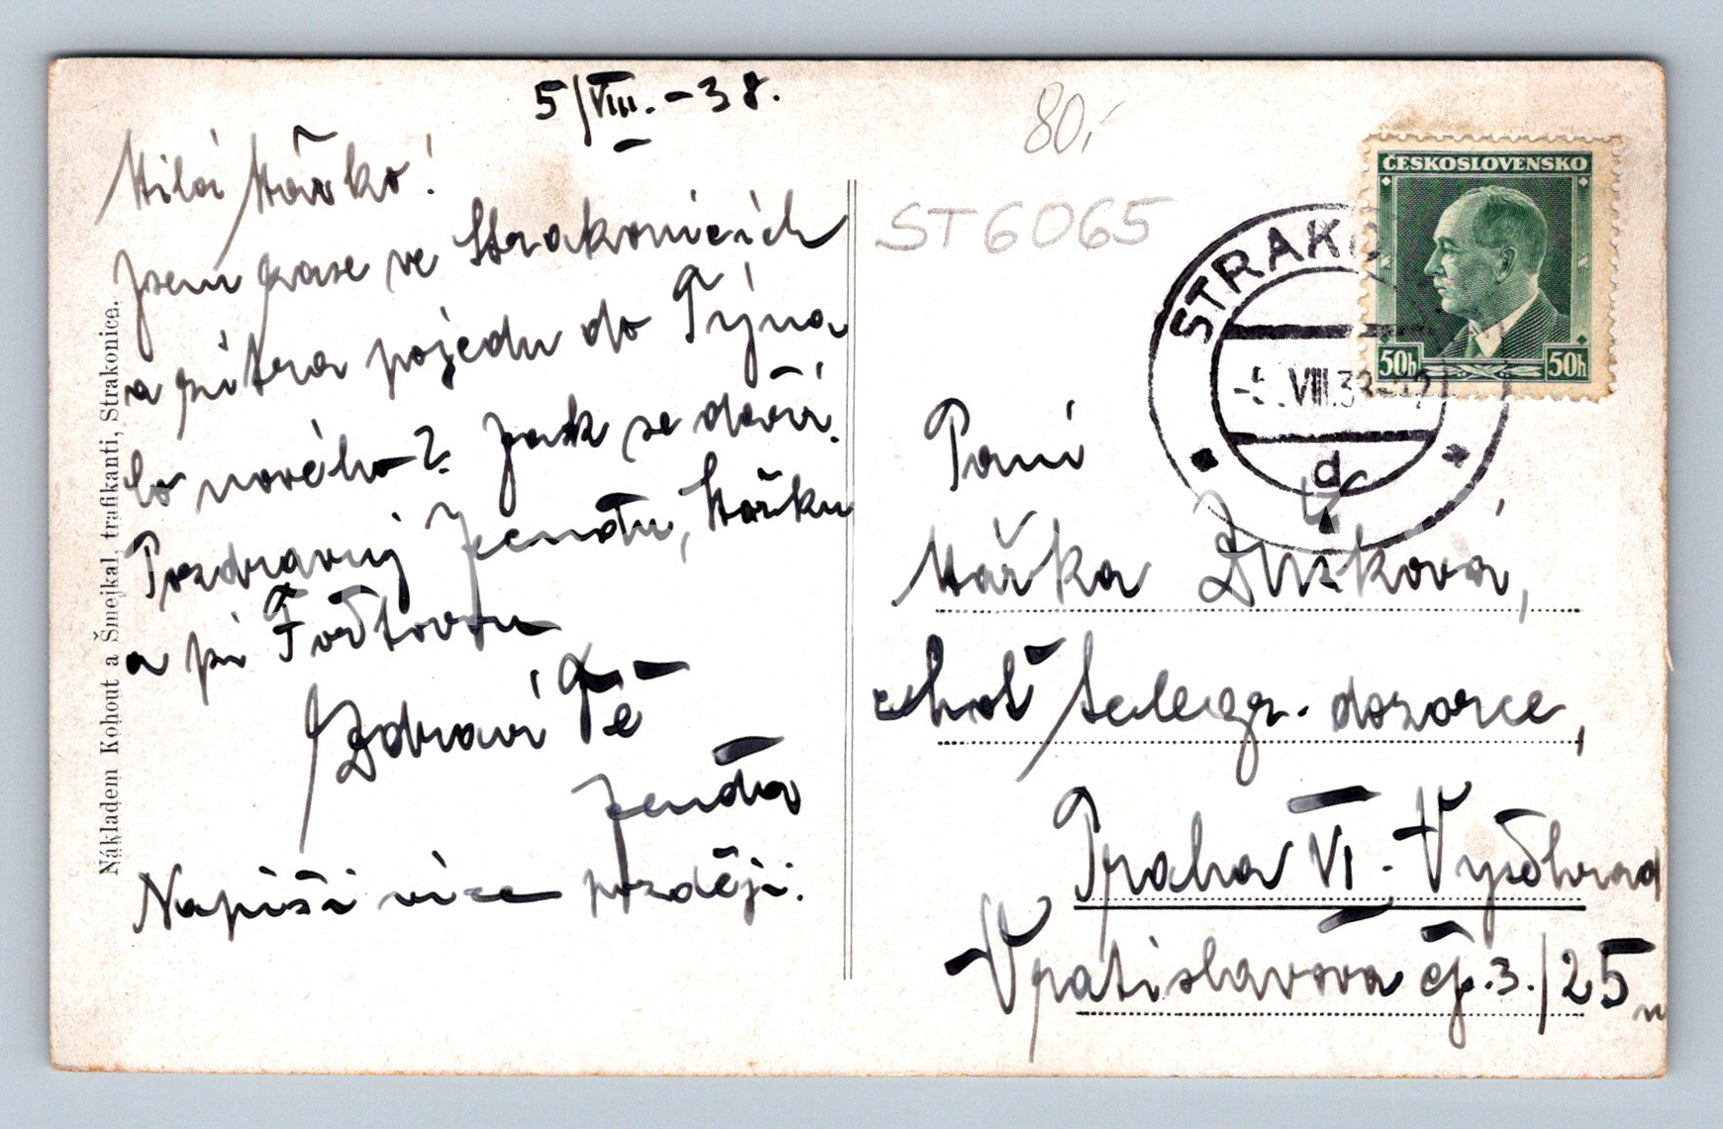 5/VIII. - 38.
Milá Mářko!
Jsem zase ve Strakonicích
a zítra pojedu do Týna
Co nového? Jak se daří.
Pozdravuj Jendu, Mářku
a pí Foltovou
Zdraví Tě
Jenda
Napíši více později.
Nákladem Kohout a Šmejkal, trafikanti, Strakonice.
80,-
ST6065
ČESKOSLOVENSKO
50h 50h
STRAKO
-5.VIII.38-12
d
Paní
Mářka Dušková,
choť telegr. dozorce,
Praha VI - Vyšehrad
Vratislavova čp. 3./25